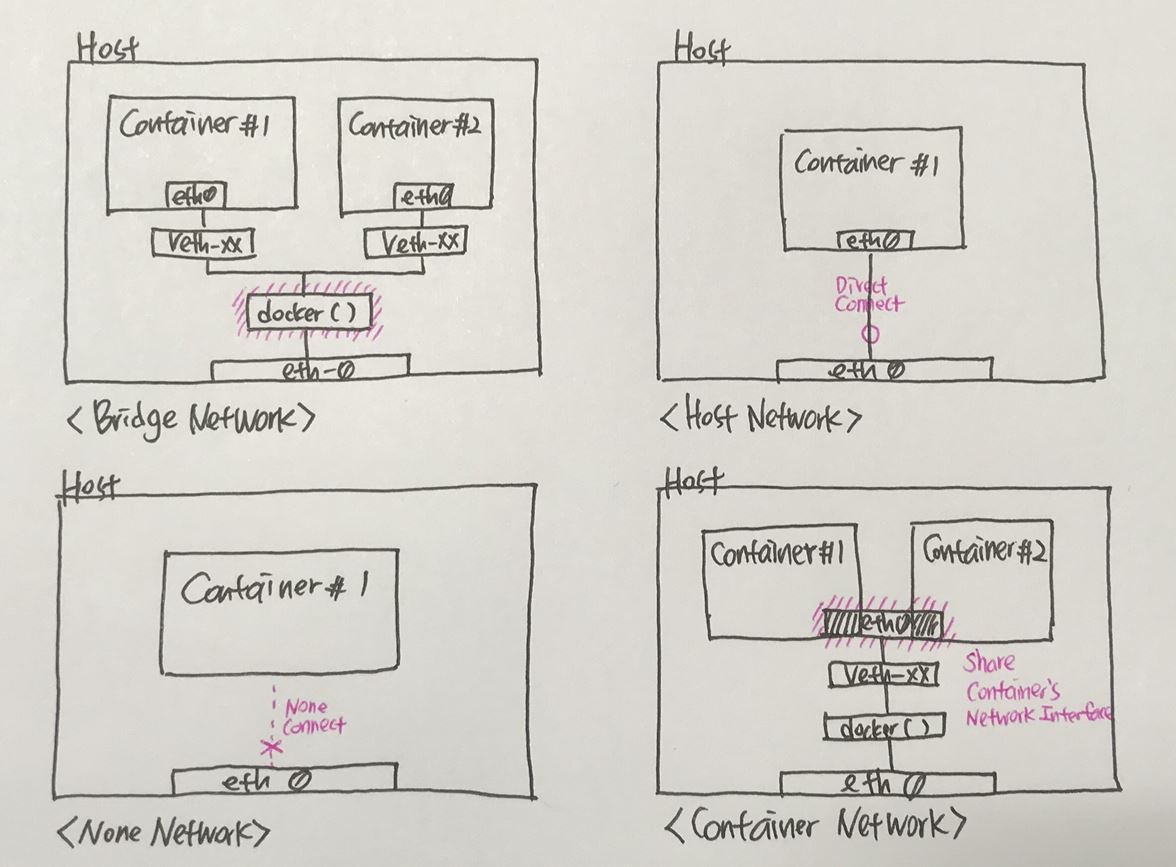 Host
Container #1
Container #2
eth0
eth0
Veth-xx
Veth-xx
docker()
eth-0
<Bridge Network>
Host
Container #1
eth0
Direct
Connect
eth 0
<Host Network>
Host
Container # 1
None
Connect
eth 0
<None Network>
Host
Container #1
Container #2
eth0
Veth-xx
docker()
Share
Container's
Network Interface
eth 0
<Container Network>